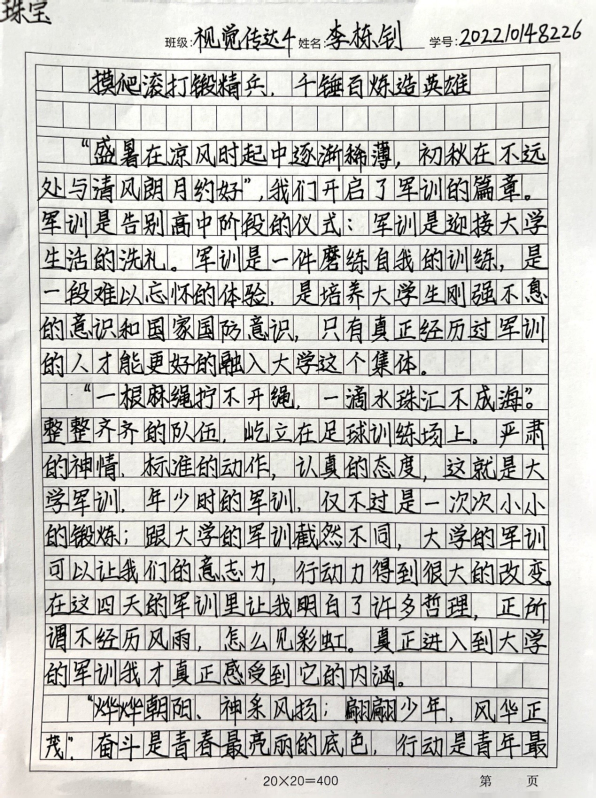 珠宝
班级:视觉传达4 姓名:李栋钊 学号:202210148226
摸爬滚打锻精兵，千锤百炼造英雄
“盛暑在凉风时起中逐渐稀薄，初秋在不远
处与清风朗月约好”，我们开启了军训的篇章。
军训是告别高中阶段的仪式；军训是迎接大学
生活的洗礼。军训是一件磨练自我的训练，是
一段难以忘怀的体验，是培养大学生刚强不息
的意识和国家国防意识，只有真正经历过军训
的人才能更好的融入大学这个集体。
“一根麻绳拧不开绳，一滴水珠汇不成海”。
整整齐齐的队伍，屹立在足球训练场上。严肃
的神情，标准的动作，认真的态度，这就是大
学军训，年少时的军训，仅不过是一次次小小
的锻炼；跟大学的军训截然不同，大学的军训
可以让我们的意志力，行动力得到很大的改变。
在这四天的军训里让我明白了许多哲理，正所
谓不经历风雨，怎么见彩虹。真正进入到大学
的军训我才真正感受到它的内涵。
“烨烨朝阳、神采风扬；翩翩少年，风华正
茂”。奋斗是青春最亮丽的底色，行动是青年最
20×20=400 第 页